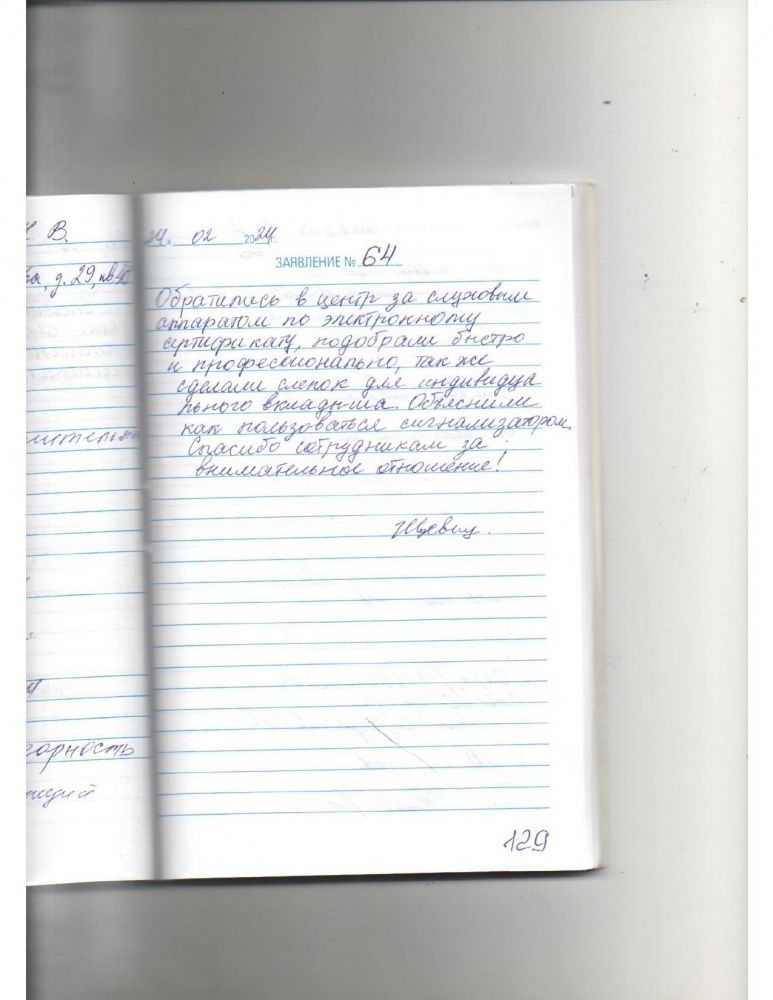 В.
д. 29, кв.
02 2024 г.
ЗАЯВЛЕНИЕ № 64
Обратились в центр за слуховым
аппаратом по электронному
сертификату, подобрали быстро
и профессионально, так же
сделали слепок для индивидуа
льного вкладыша. Объяснили
как пользоваться сигнализатором.
Спасибо сотрудникам за
внимательное отношение!
129